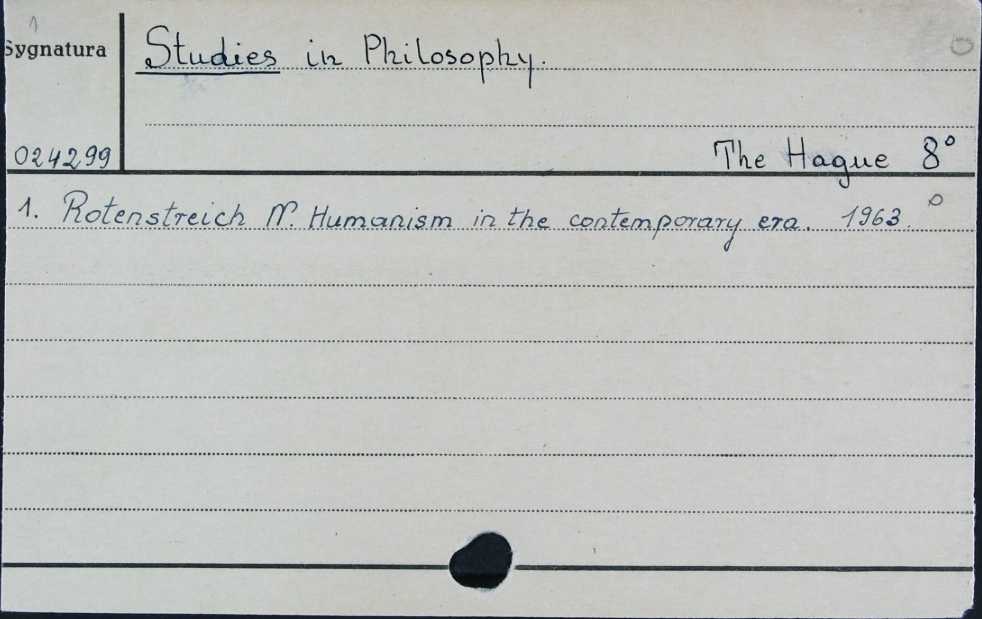 Sygnatura
Studies in Philosophy.
024299
The Hague 8°
1. Rotenstreich N. Humanism in the contemporary era. 1963.